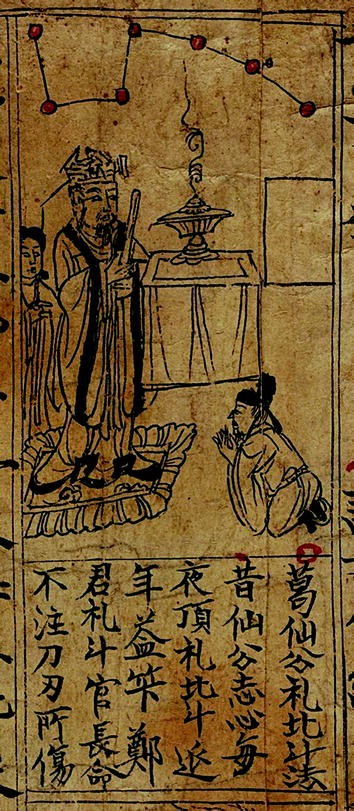 葛仙公礼北斗法
昔仙公志心每
夜頂礼北斗延
年益筭鄭
君礼斗官長命
不注刀刃所傷